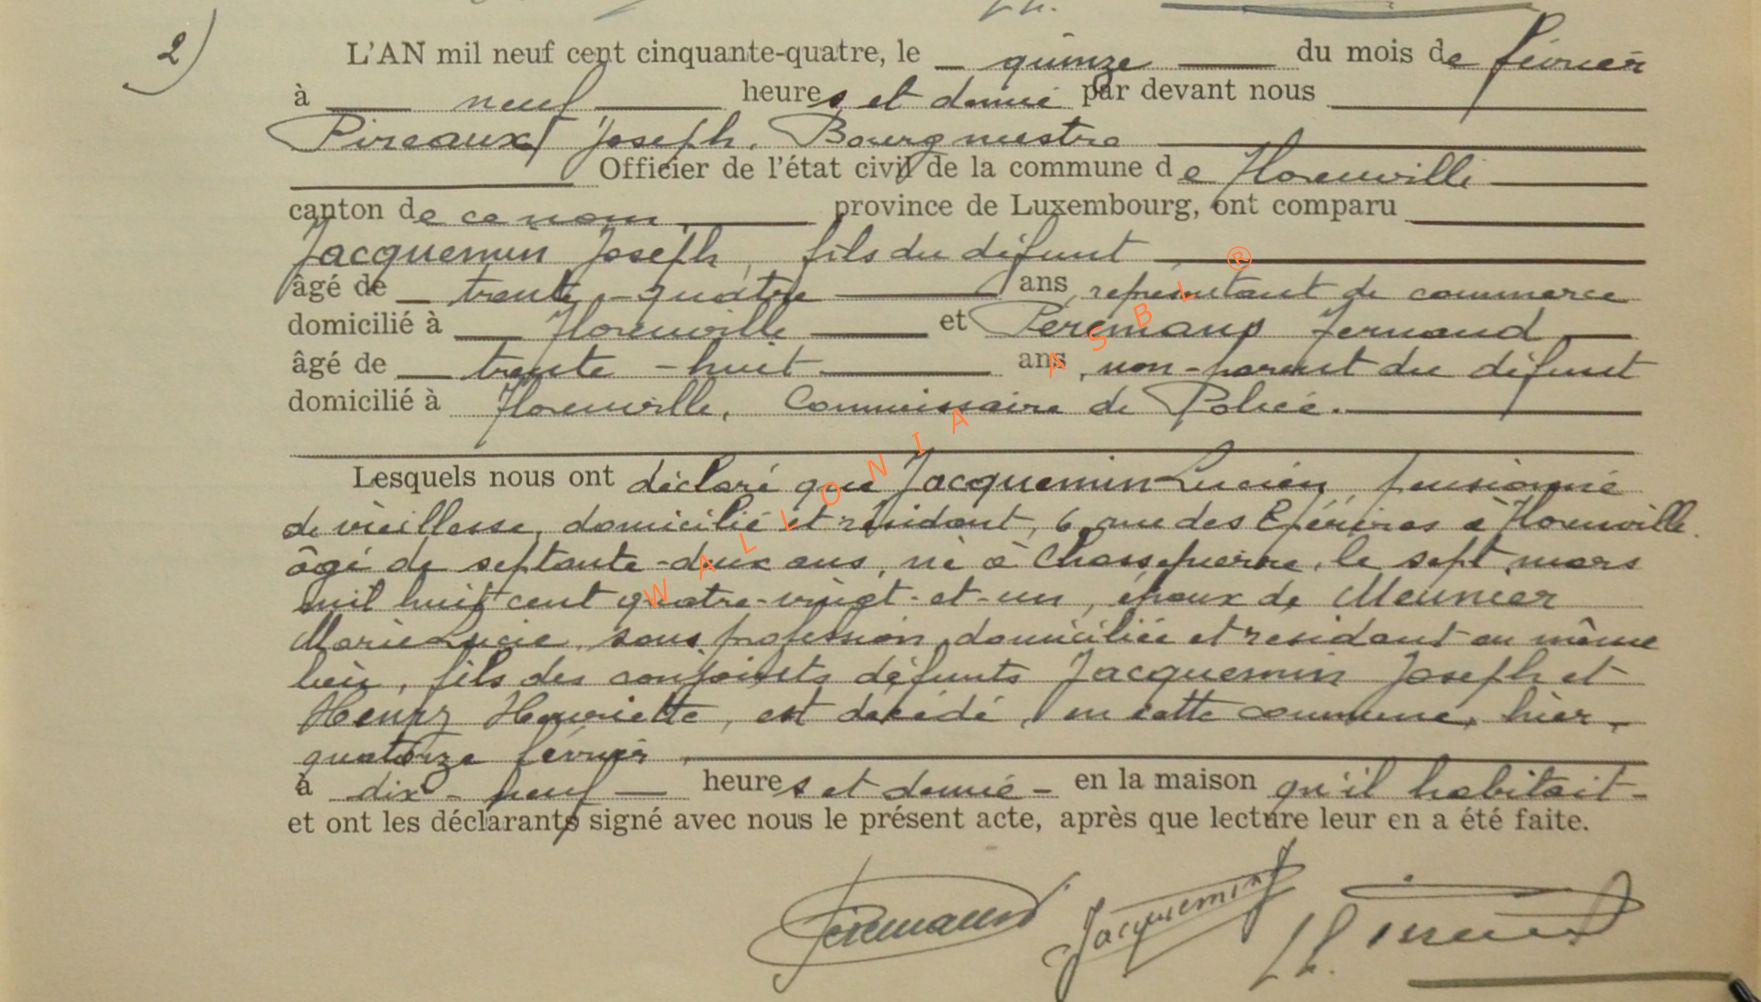 2)
L'AN mil neuf cent cinquante-quatre, le quinze du mois de février
à neuf heures et demie par devant nous
Pireaux Joseph, Bourgmestre
Officier de l'état civil de la commune de Florenville
canton de ce nom province de Luxembourg, ont comparu
Jacquemin Joseph, fils du défunt
âgé de trente-quatre ans, représentant de commerce
domicilié à Florenville et Peremans Fernand
âgé de trente-huit ans, non-parent du défunt
domicilié à Florenville, Commissaire de Police.
Lesquels nous ont déclaré que Jacquemin Lucien, pensionné
de vieillesse, domicilié et résidant, 6, rue des Epérires à Florenville.
âgé de septante-deux ans, né à Chassepierre, le sept mars
mil huit cent quatre-vingt-et-un, époux de Meunier
Marie Lucie, sans profession, domiciliée et résidant au même
lieu, fils des conjoints défunts Jacquemin Joseph et
Henry Henriette, est décédé, en cette commune, hier,
quatorze février,
à dix-neuf heures et demie en la maison qu'il habitait
et ont les déclarants signé avec nous le présent acte, après que lecture leur en a été faite.
Peremans Jacquemin
WALLONIA ASBL ®